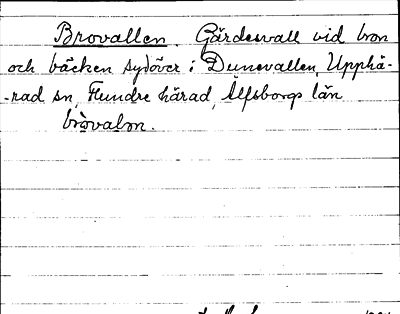 Brovallen. Gärdesvall vid bron
och bäcken sydöver i Dunevallen, Upphä-
-rad sn, Flundre härad, Älfsborgs län
bròvalṇn.